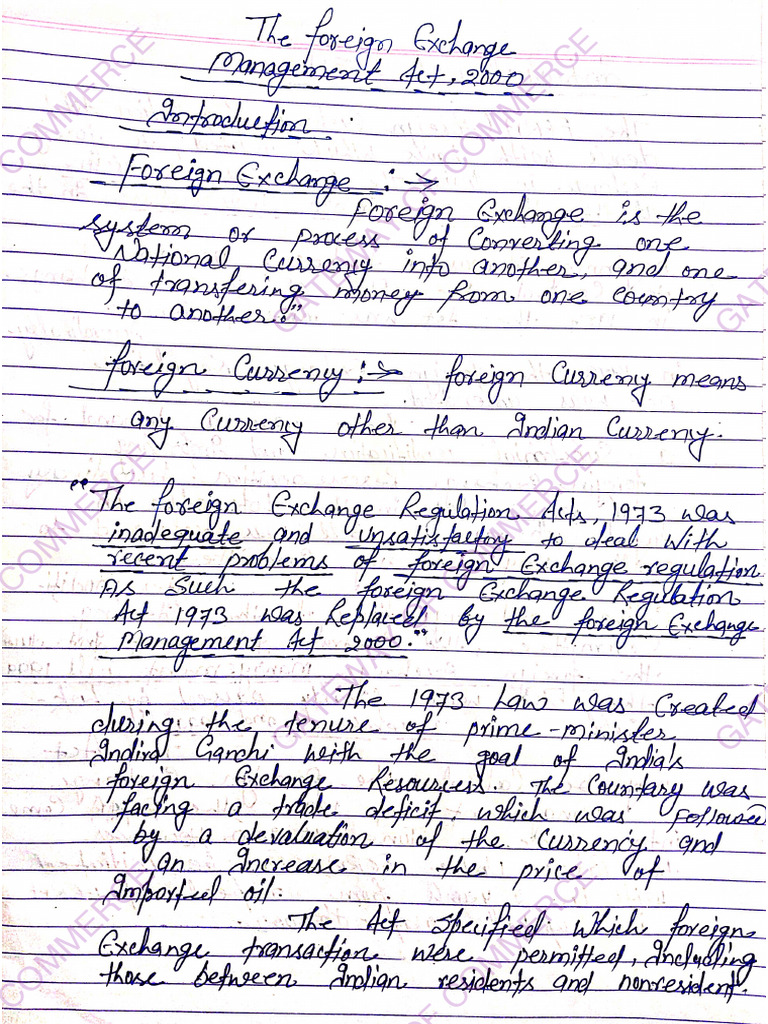 The Foreign Exchange
Management Act, 2000
Introduction
Foreign Exchange :→
Foreign Exchange is the
system or process of Converting one
National Currency into another, and one
of transfering money from one country
to another."
foreign Currency :→ foreign Currency means
any Currency other than Indian Currency.
"The foreign Exchange Regulation Acts, 1973 was
inadequate and unsatisfactory to deal with
recent problems of foreign Exchange regulation
As Such the foreign Exchange Regulation
Act 1973 was Replaced by the foreign Exchange
Management Act 2000."
The 1973 Law was Created
during the tenure of prime-minister
Indira Gandhi with the goal of India's
foreign Exchange Resourcess. The Countary was
facing a trade deficit, which was followed
by a devaluation of the Currency and
an Increase in the price of
Imported oil.
The Act specified which foreign
Exchange transaction were permitted, Including
those between Indian residents and nonresident.
GATEWAY OF COMMERCE